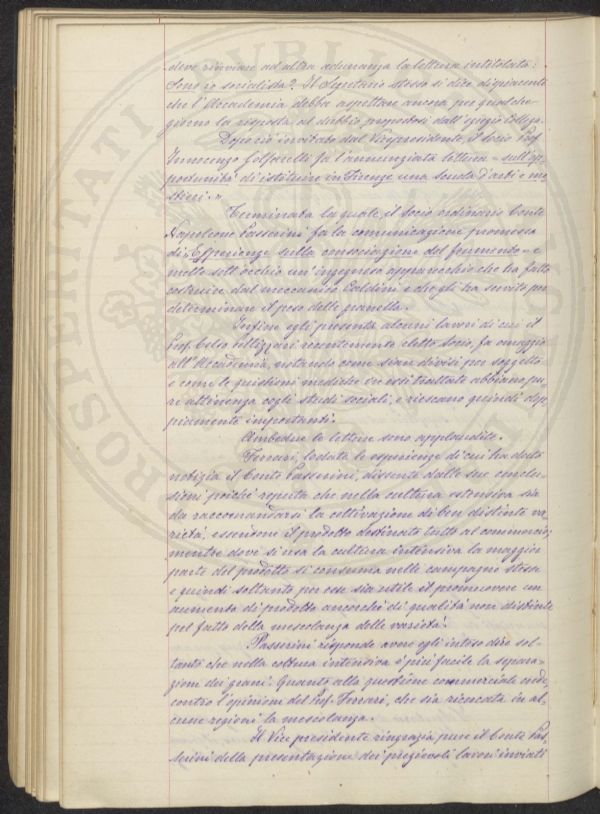 deve rinviare ad altra adunanza la lettura intitolata:
Sono io socialista? Il Segretario stesso si dice dispiacente
che l'Accademia debba aspettare ancora per qualche
giorno la risposta al dubbio propostosi dall'egregio collega.
Dopo ciò invitato dal Vicepresidente, il socio Prof.
Innocenzo Golfarelli fa l'annunziata lettura "sull'op-
portunità di istituire in Firenze una scuola d'arti e me-
stieri."
Terminata la quale, il socio ordinario Conte
Napoleone Passerini fa la comunicazione promessa
di "Esperienze sulla consociazione del frumento" e
mette sott'occhio un'ingegnoso apparecchio che ha fatto
costruire dal meccanico Caldini e che gli ha servito per
determinare il peso delle granella.
Infine egli presenta alcuni lavori di cui il
Prof. Celso Pellizzari recentemente eletto socio, fa omaggio
all'Accademia, notando come sian divisi per soggetto
e come le quistioni mediche in essi trattate abbiano pu-
re attinenza cogli studi sociali, e riescano quindi dop-
piamente importanti.
Ambedue le letture sono applaudite.
Ferrari, lodate le esperienze di cui ha dato
notizia il Conte Passerini, dissente dalle sue conclu-
sioni poichè reputa che nella cultura estensiva sia
da raccomandarsi la coltivazione di ben distinte va-
rietà, essendone il prodotto destinato tutto al commercio;
mentre dove si usa la cultura intensiva la maggior
parte del prodotto si consuma nelle campagne stesse
e quindi soltanto per esse sia utile il promuovere un
aumento di prodotto ancorchè di qualità non distinte
pel fatto della mescolanza delle varietà.
Passerini risponde avere egli inteso dire sol-
tanto che nella coltura intensiva è più facile la separa-
zione dei grani. Quanto alla questione commerciale crede
contro l'opinione del Prof. Ferrari, che sia ricercata in al-
cune regioni la mescolanza.
Il Vice presidente ringrazia pure il Conte Pas-
serini della presentazione dei pregievoli lavori inviati